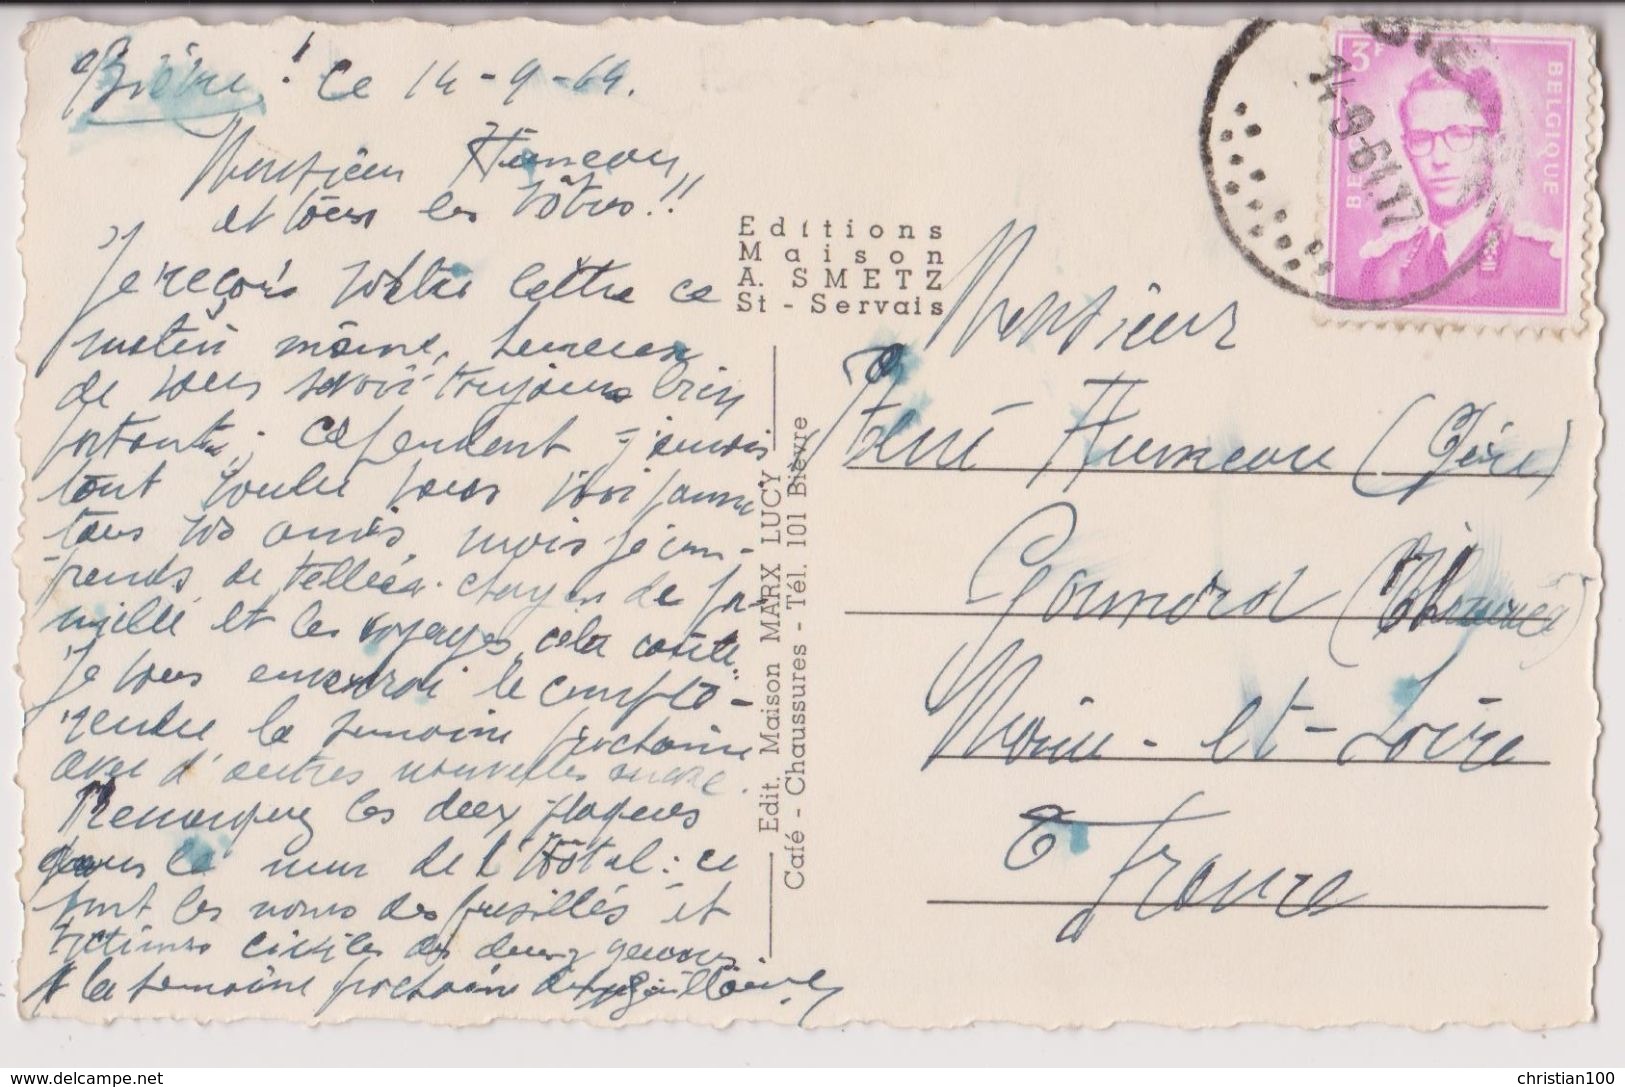 Bièvre ! Ce 14-9-64.
Monsieur Humeau,
et tous les vôtres !!
Je reçois votre lettre ce
matin même, heureux
de vous savoir toujours bien
portants ; cependant j'aurais
tant voulu vous voir parmi
tous vos amis, mais je com-
prends de telles charges de fa-
mille et les voyages, cela coûte.
Je vous enverrai le compte-
rendu la semaine prochaine
avec d'autres nouvelles encore.
Remarquez les deux plaques
dans le mur de l'Hôtel : ce
sont les noms des fusillés et
victimes civiles des deux guerres
A la semaine prochaine
Editions
Maison
A. SMETZ
St - Servais
Edit. Maison MARX LUCY
Café - Chaussures - Tél. 101 Bièvre
3 F
BELGIQUE
14-9-64 17
Monsieur
René Humeau (Père)
Gonnord
Maine-et-Loire
France
delcampe.net
christian100